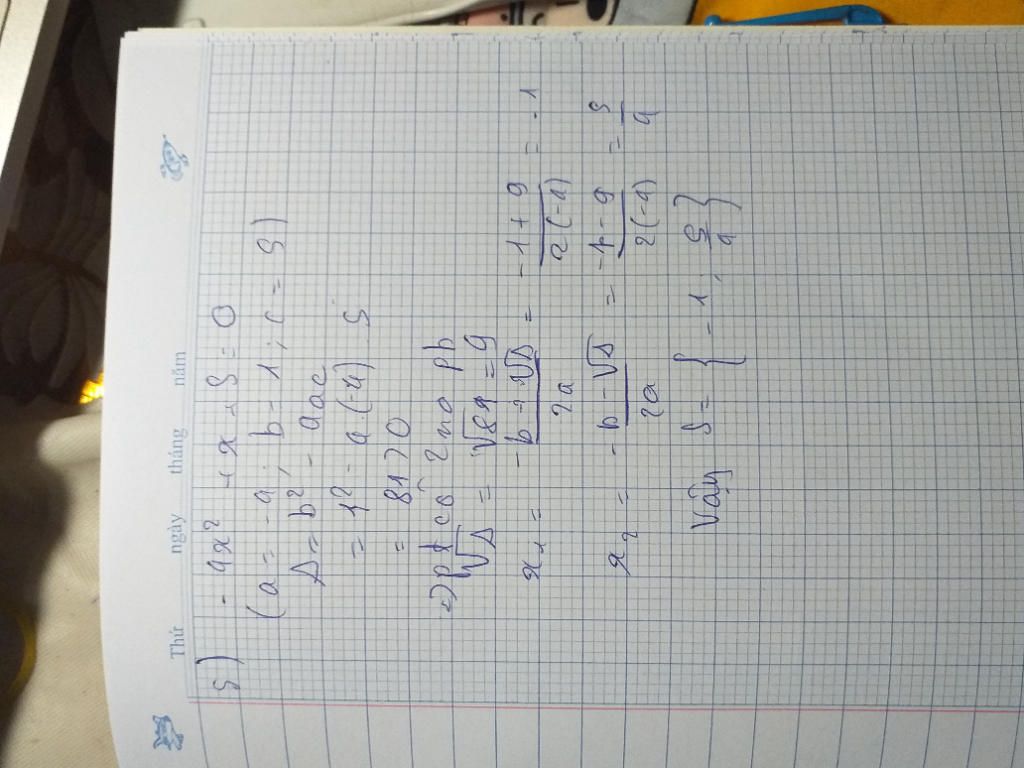 Thứ ngày tháng năm
5) - 4x² + x + 5 = 0
(a = -4; b = 1; c = 5)
Δ = b² - 4ac
= 1² - 4.(-4).5
= 81 > 0
=) pt có 2 no pb
√Δ = √81 = 9
x₁ = -b + √Δ / 2a = -1 + 9 / 2(-4) = -1
x₂ = -b - √Δ / 2a = -1 - 9 / 2(-4) = 5/4
Vậy S = { -1; 5/4 }